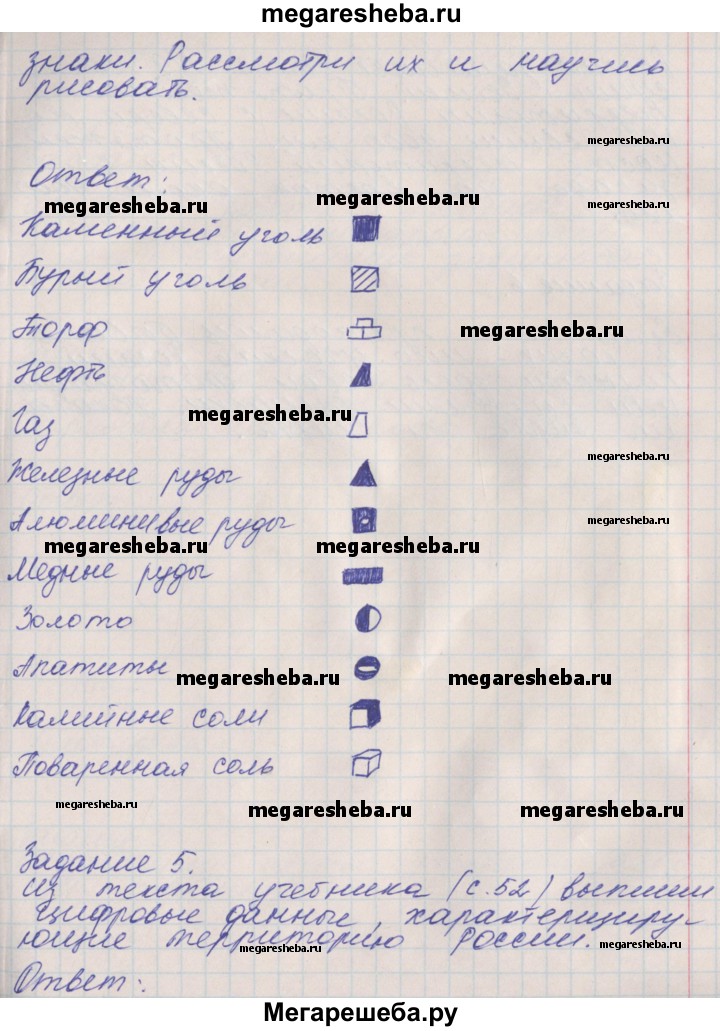 megaresheba.ru
знаки. Рассмотри их и научись
рисовать.
megaresheba.ru
Ответ:
megaresheba.ru megaresheba.ru megaresheba.ru
Каменный уголь
Бурый уголь
Торф
megaresheba.ru
Нефть
megaresheba.ru
Газ
megaresheba.ru
Железные руды
Алюминивые руды
megaresheba.ru
megaresheba.ru megaresheba.ru
Медные руды
Золото
Апатиты
megaresheba.ru megaresheba.ru
Калийные соли
Поваренная соль
megaresheba.ru megaresheba.ru megaresheba.ru
Задание 5.
Из текста учебника (с.52) выпиши
цифровые данные, характеризиру-
ющие территорию России.
megaresheba.ru megaresheba.ru megaresheba.ru
Ответ:
Мегарешеба.ру